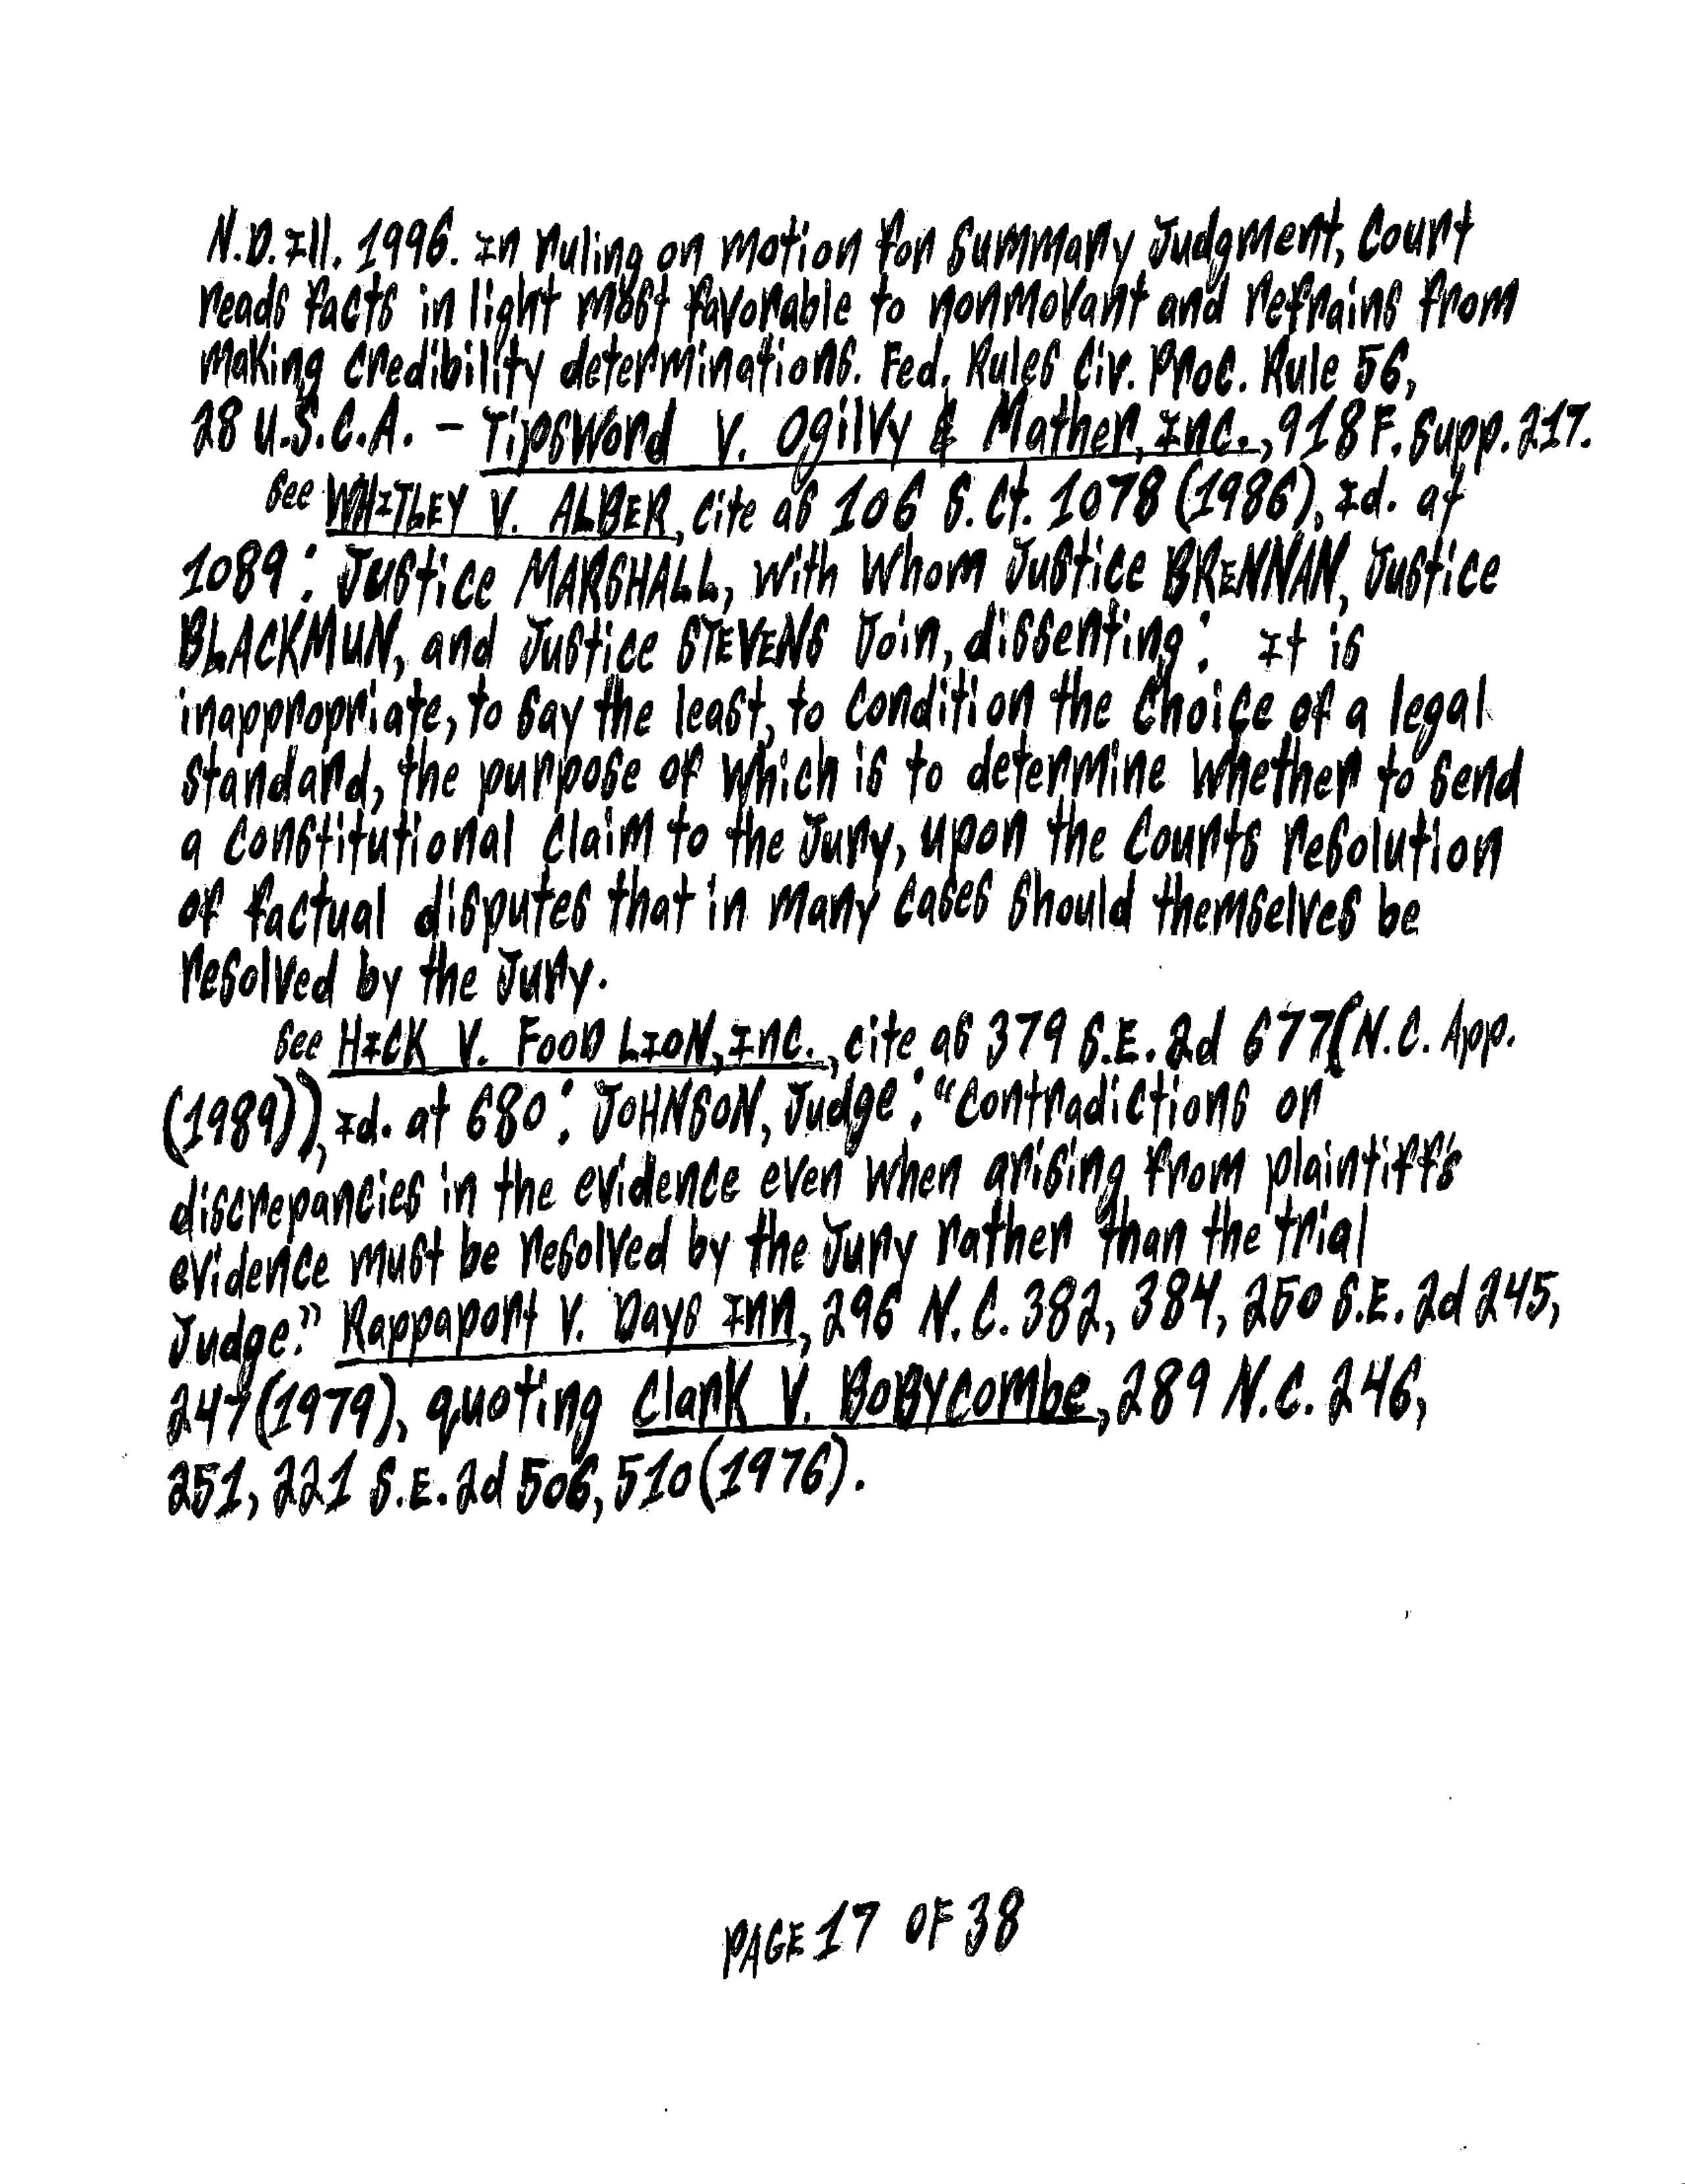 N.D.Ill. 1996. In ruling on motion for summary judgment, court
reads facts in light most favorable to nonmovant and refrains from
making credibility determinations. Fed. Rules Civ. Proc. Rule 56,
28 U.S.C.A. - Tipsword v. Ogilvy & Mather, Inc., 918 F. Supp. 217.
See WHITLEY V. ALBER, cite as 106 S. Ct. 1078 (1986), Id. at
1089: Justice MARSHALL, with whom Justice BRENNAN, Justice
BLACKMUN, and Justice STEVENS join, dissenting: It is
inappropriate, to say the least, to condition the choice of a legal
standard, the purpose of which is to determine whether to send
a constitutional claim to the jury, upon the Courts resolution
of factual disputes that in many cases should themselves be
resolved by the jury.
See HICK V. FOOD LION, INC., cite as 379 S.E. 2d 677 (N.C. App.
(1989)), Id. at 680: JOHNSON, Judge: "Contradictions or
discrepancies in the evidence even when arising from plaintiff's
evidence must be resolved by the jury rather than the trial
judge." Rappaport v. Days Inn, 296 N.C. 382, 384, 250 S.E. 2d 245,
247 (1979), quoting Clark v. Bobycombe, 289 N.C. 246,
251, 221 S.E. 2d 506, 510 (1976).
PAGE 17 OF 38